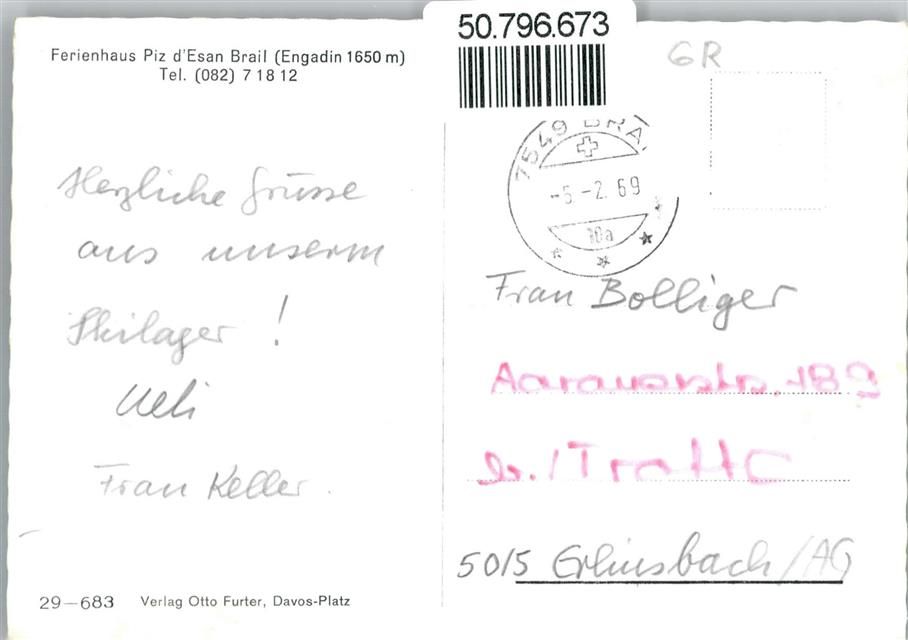 Ferienhaus Piz d'Esan Brail (Engadin 1650 m)
Tel. (082) 7 18 12
Herzliche Grüsse
aus unserm
Skilager !
Ueli
Frau Keller.
29-683 Verlag Otto Furter, Davos-Platz
50.796.673
GR
7549 BRA
-5.-2.69
10a
Frau Bolliger
Aarauerstr. 189
b./Trafo
5015 Erlinsbach/AG